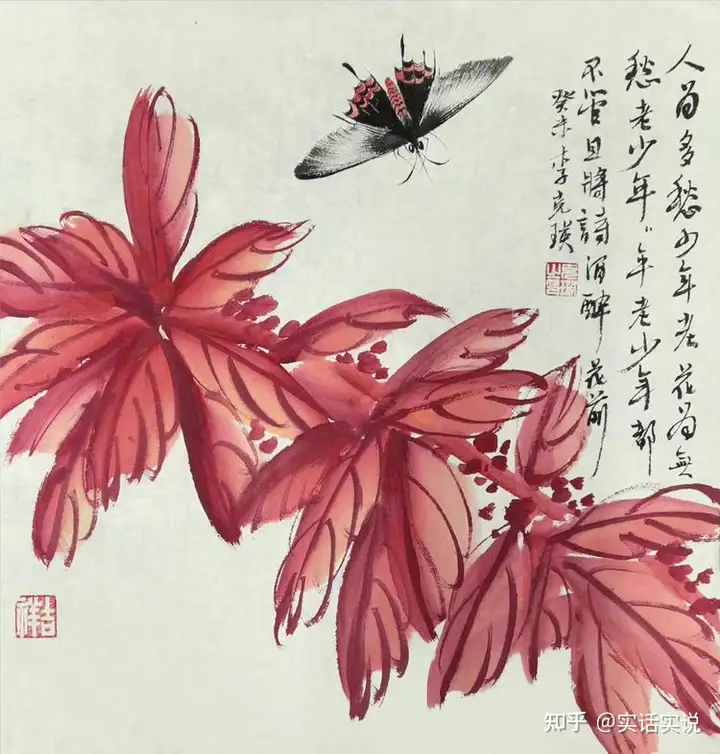 人為多愁少年老花為無
愁老少年〃年老少年都
不管且將詩酒醉花前
癸未李克瑛
吉祥
知乎 @实话实说